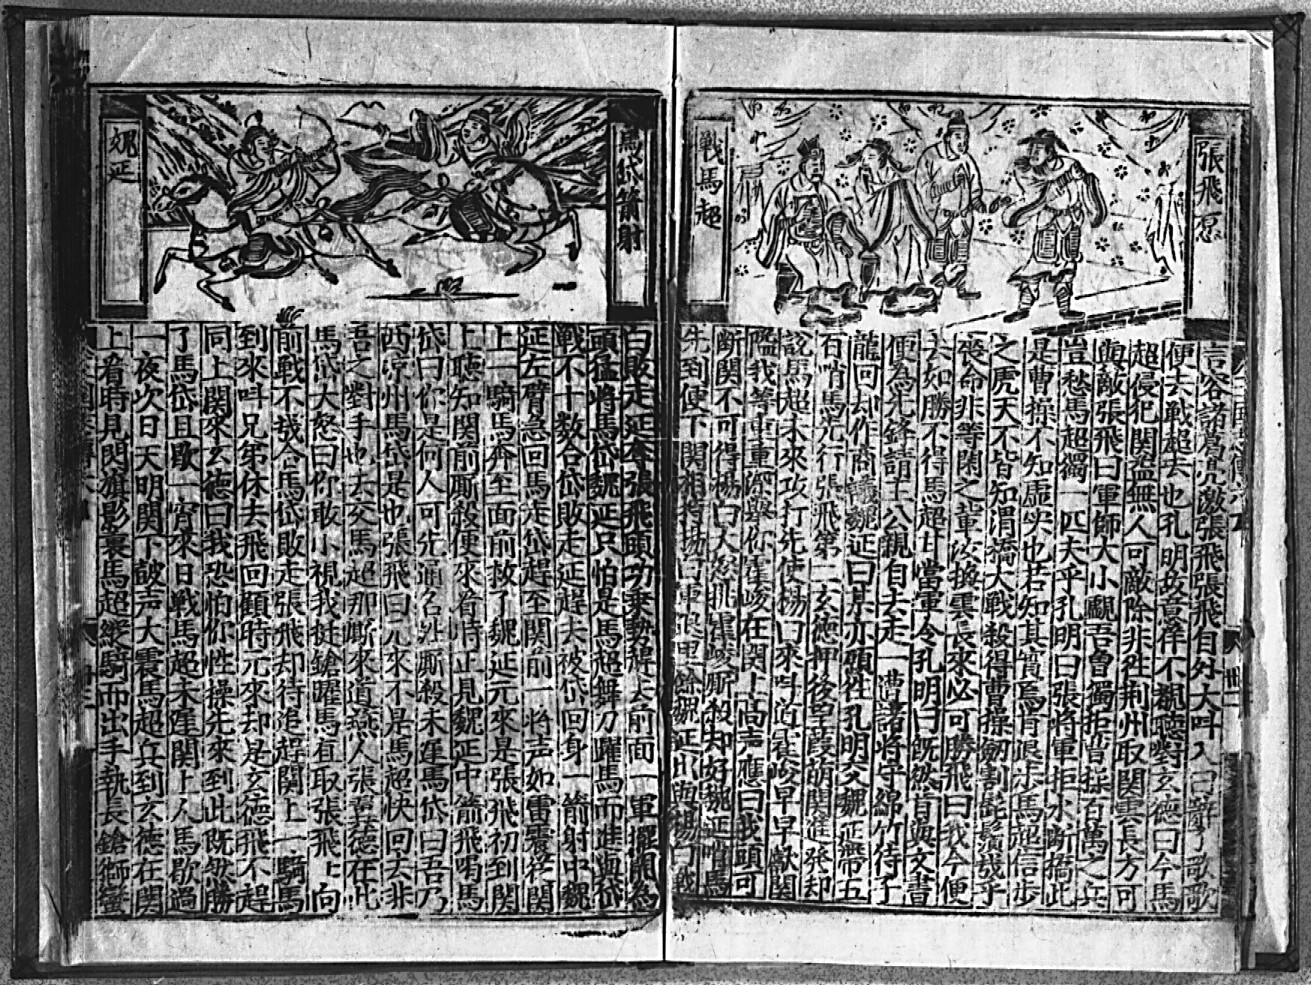 張飛忿
戰馬超
言容諸葛亮激張飛張飛自外大呌入曰辭了歌歌
便去戰超去也孔明故意佯不覩聽對玄德曰今馬
超侵犯関盜無人可敵除非徃荊州取関雲長方可
與敵張飛曰軍師大小覷吾曾獨拒曹操百萬之兵
豈愁馬超獨一匹夫乎孔明曰張將軍拒水断橋此
是曹操不知虛实也若知其實焉肯退步馬超信步
之虎天下皆知渭橋大戰殺得曹操劒割髭鬚哉乎
喪命非等閑之輩故換雲長來必可勝飛曰我今便
去如勝不得馬超甘當軍令孔明曰既然肯與文書
便為先鋒請主公親自去走一遭諸將守綿竹待子
龍回却作商議魏延曰某亦願徃孔明交魏延帶五
百哨馬先行張飛第二玄德押後望葭萌関進發却
說馬超未來攻打先使楊曰來呌道霍峻早早獻関
隘我等重重與你霍峻在関上高声應曰我頭可
断関不可得楊曰大怒挑霍峻厮殺却好魏延哨馬
先到便下関相持楊曰軍退里餘魏延出與楊曰戰
馬岱箭射
魏延
白敗走延奪張飛頭功乗勢趕去前面一軍擺開為
頭猛將馬岱魏延只怕是馬超舞刀躍馬而進與岱
戰不十数合岱敗走延趕去被岱回身一箭射中魏
延左臂急回馬走岱趕至関前一將声如雷震從関
上一騎馬奔至面前救了魏延元來是張飛初到関
上聽知関前厮殺便來看時正見魏延中箭飛喝馬
岱曰你是何人可先通名然厮殺未遲馬岱曰吾乃
西凉州馬岱是也張飛曰元來不是馬超快回去非
吾之對手也去交馬超那厮來道燕人張翼德在此
馬岱大怒曰你敢小視我挺鎗躍馬直取張飛上向
前戰不数合馬岱敗走張飛却待追趕関上一騎馬
到來呌兄弟休去飛回顧時元來却是玄德飛不趕
同上関來玄德曰我恐怕你性操先來到此既然勝
了馬岱且歇一宵來日戰馬超未遲関上人馬歇過
一夜次日天明関下皷声大震馬超兵到玄德在関
上看時見門旗影裏馬超縱騎而出手執長鎗獅蠻